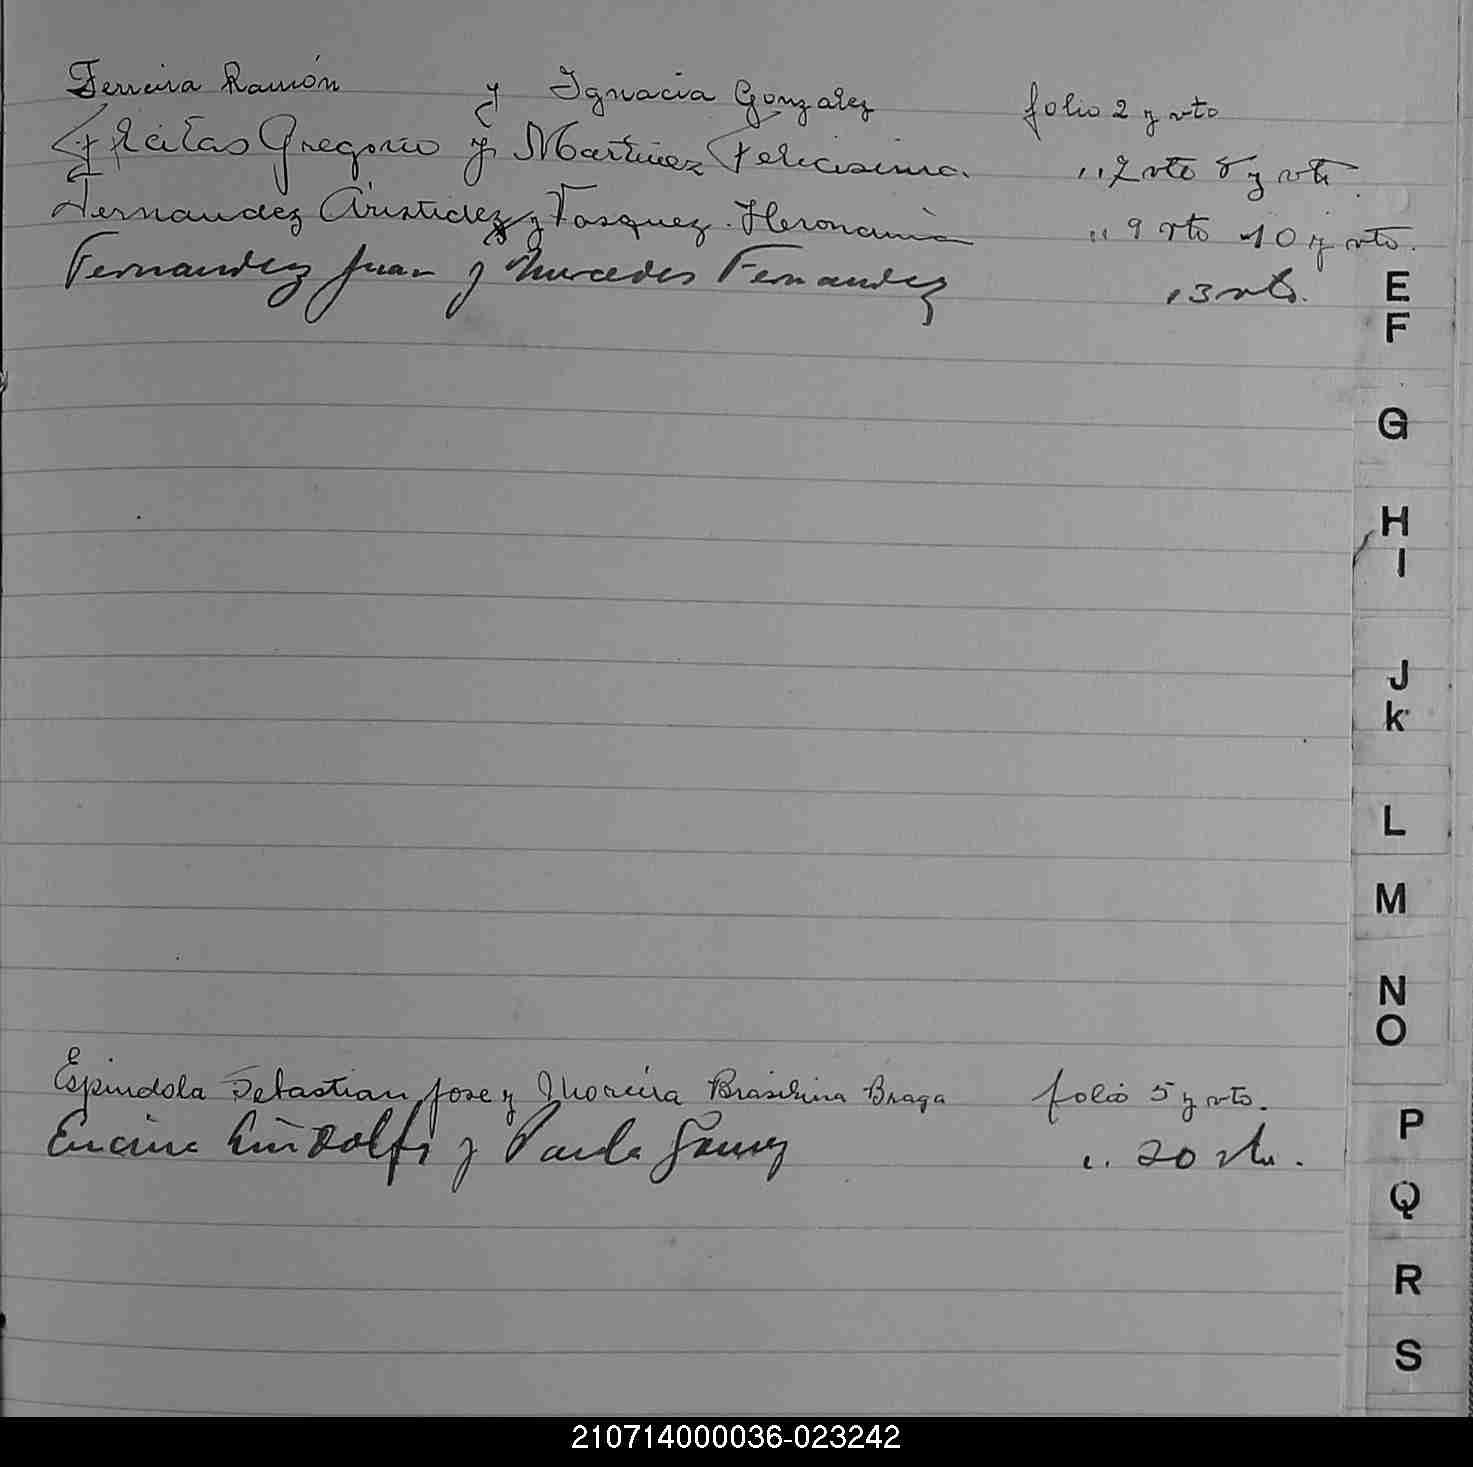 Ferreira Ramón y Ignacia Gonzalez folio 2 y vto
Freitas Gregorio y Martinez Felicisima. " 7 vto 8 y vto.
Fernandez Aristidez y Vasquez Heronima " 9 vto 10 y vto.
Fernandez Juan y Mercedes Fernandez 13 vto.
E
F
G
H
I
J
k
L
M
N
O
Espindola Sebastian Jose y Moreira Brasilina Braga folio 5 y vto.
Encina y Paula Gomez " 20 vto.
P
Q
R
S
210714000036-023242